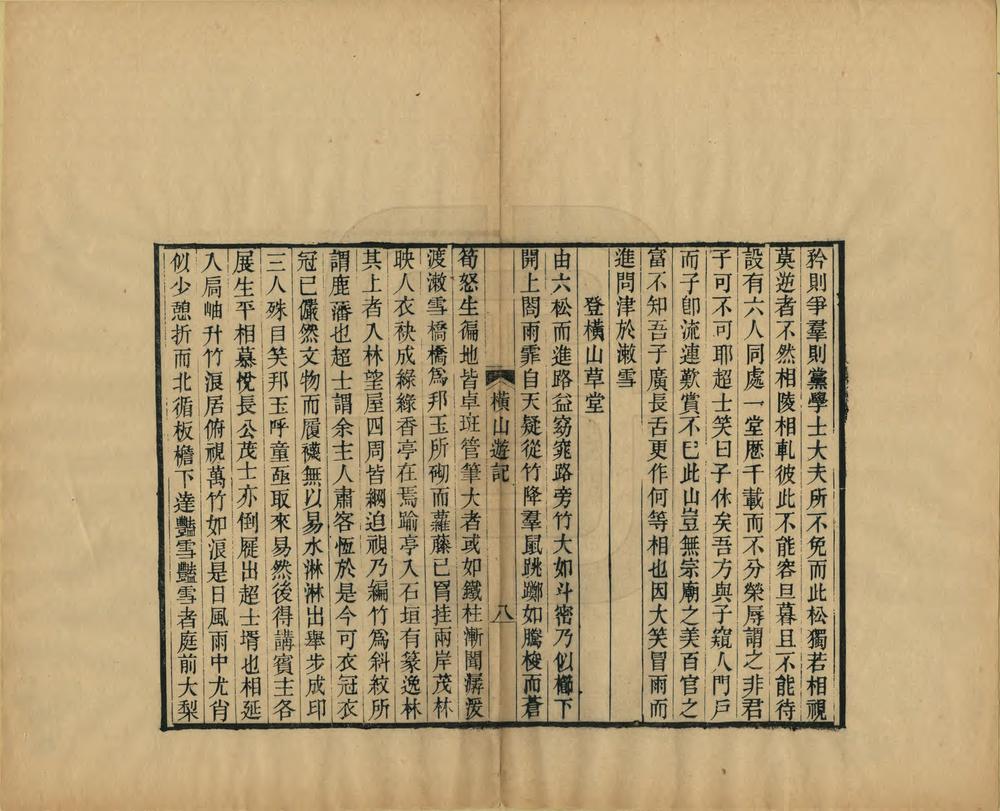 矜則爭羣則黨學士大夫所不免而此松獨若相視
莫逆者不然相陵相軋彼此不能容旦暮且不能待
設有六人同處一堂歷千載而不分榮辱謂之非君
子可不可耶超士笑曰子休矣吾方與子窺人門戶
而子卽流連歎賞不已此山豈無宗廟之美百官之
富不知吾子廣長舌更作何等相也因大笑冒雨而
進問津於漱雪
登橫山草堂
由六松而進路益窈窕路旁竹大如斗密乃似櫛下
開上閟雨霏自天疑從竹降羣鼠跳躑如騰梭而蒼
橫山遊記
八
筍怒生徧地皆卓斑管筆大者或如鐵柱漸聞潺湲
渡漱雪橋橋爲邦玉所砌而蘿藤已罥挂兩岸茂林
映人衣袂成綠綠香亭在焉踰亭入石垣有篆逸林
其上者入林望屋四周皆綱迫視乃編竹爲斜紋所
謂鹿藩也超士謂余主人肅客恆於是今可衣冠衣
冠已儼然文物而履襪無以易水淋淋出舉步成印
三人殊目笑邦玉呼童亟取來易然後得講賓主各
展生平相慕悅長公茂士亦倒屣出超士壻也相延
入扃岫升竹浪居俯視萬竹如浪是日風雨中尤肖
似少憩折而北循板檐下達豔雪豔雪者庭前大梨